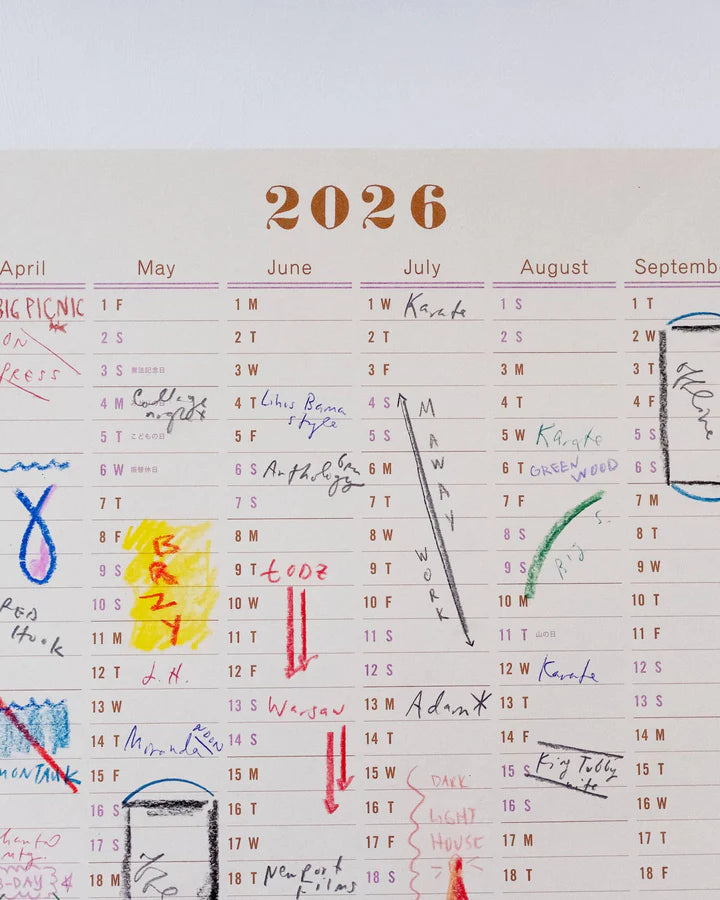 2026
April
BIG PICNIC
ON
PRESS
RED
Hook
MONTAUK
B-DAY
May
1 F
2 S
3 S 憲法記念日
4 M Collage
5 T こどもの日
6 W 振替休日
7 T
8 F B
9 S R
10 S Z
11 M Y
12 T J.H.
13 W
14 T Miranda NOON
15 F
16 S
17 S
18 M
June
1 M
2 T
3 W
4 T
style
5 F
6 S Anthology 6pm
7 S
8 M
9 T ŁODZ
10 W
11 T
12 F
13 S Warsaw
14 S
15 M
16 T
17 W
18 T Newport
Films
July
1 W Karate
2 T
3 F
4 S M
5 S A
6 M W
7 T A
Y
8 W W
9 T O
R
10 F K
11 S
12 S
13 M Adam
14 T
15 W DARK
16 T LIGHT
17 F HOUSE
18 S
August
1 S
2 S
3 M
4 T
5 W Karate
6 T GREENWOOD
7 F
8 S
9 S Big S.
10 M
11 T 山の日
12 W Karate
13 T
14 F
15 S King Tubby
nite
16 S
17 M
18 T
Septemb
1 T
2 W
3 T offline
4 F
5 S
6 S
7 M
8 T
9 W
10 T
11 F
12 S
13 S
14 M
15 T
16 W
17 T
18 F